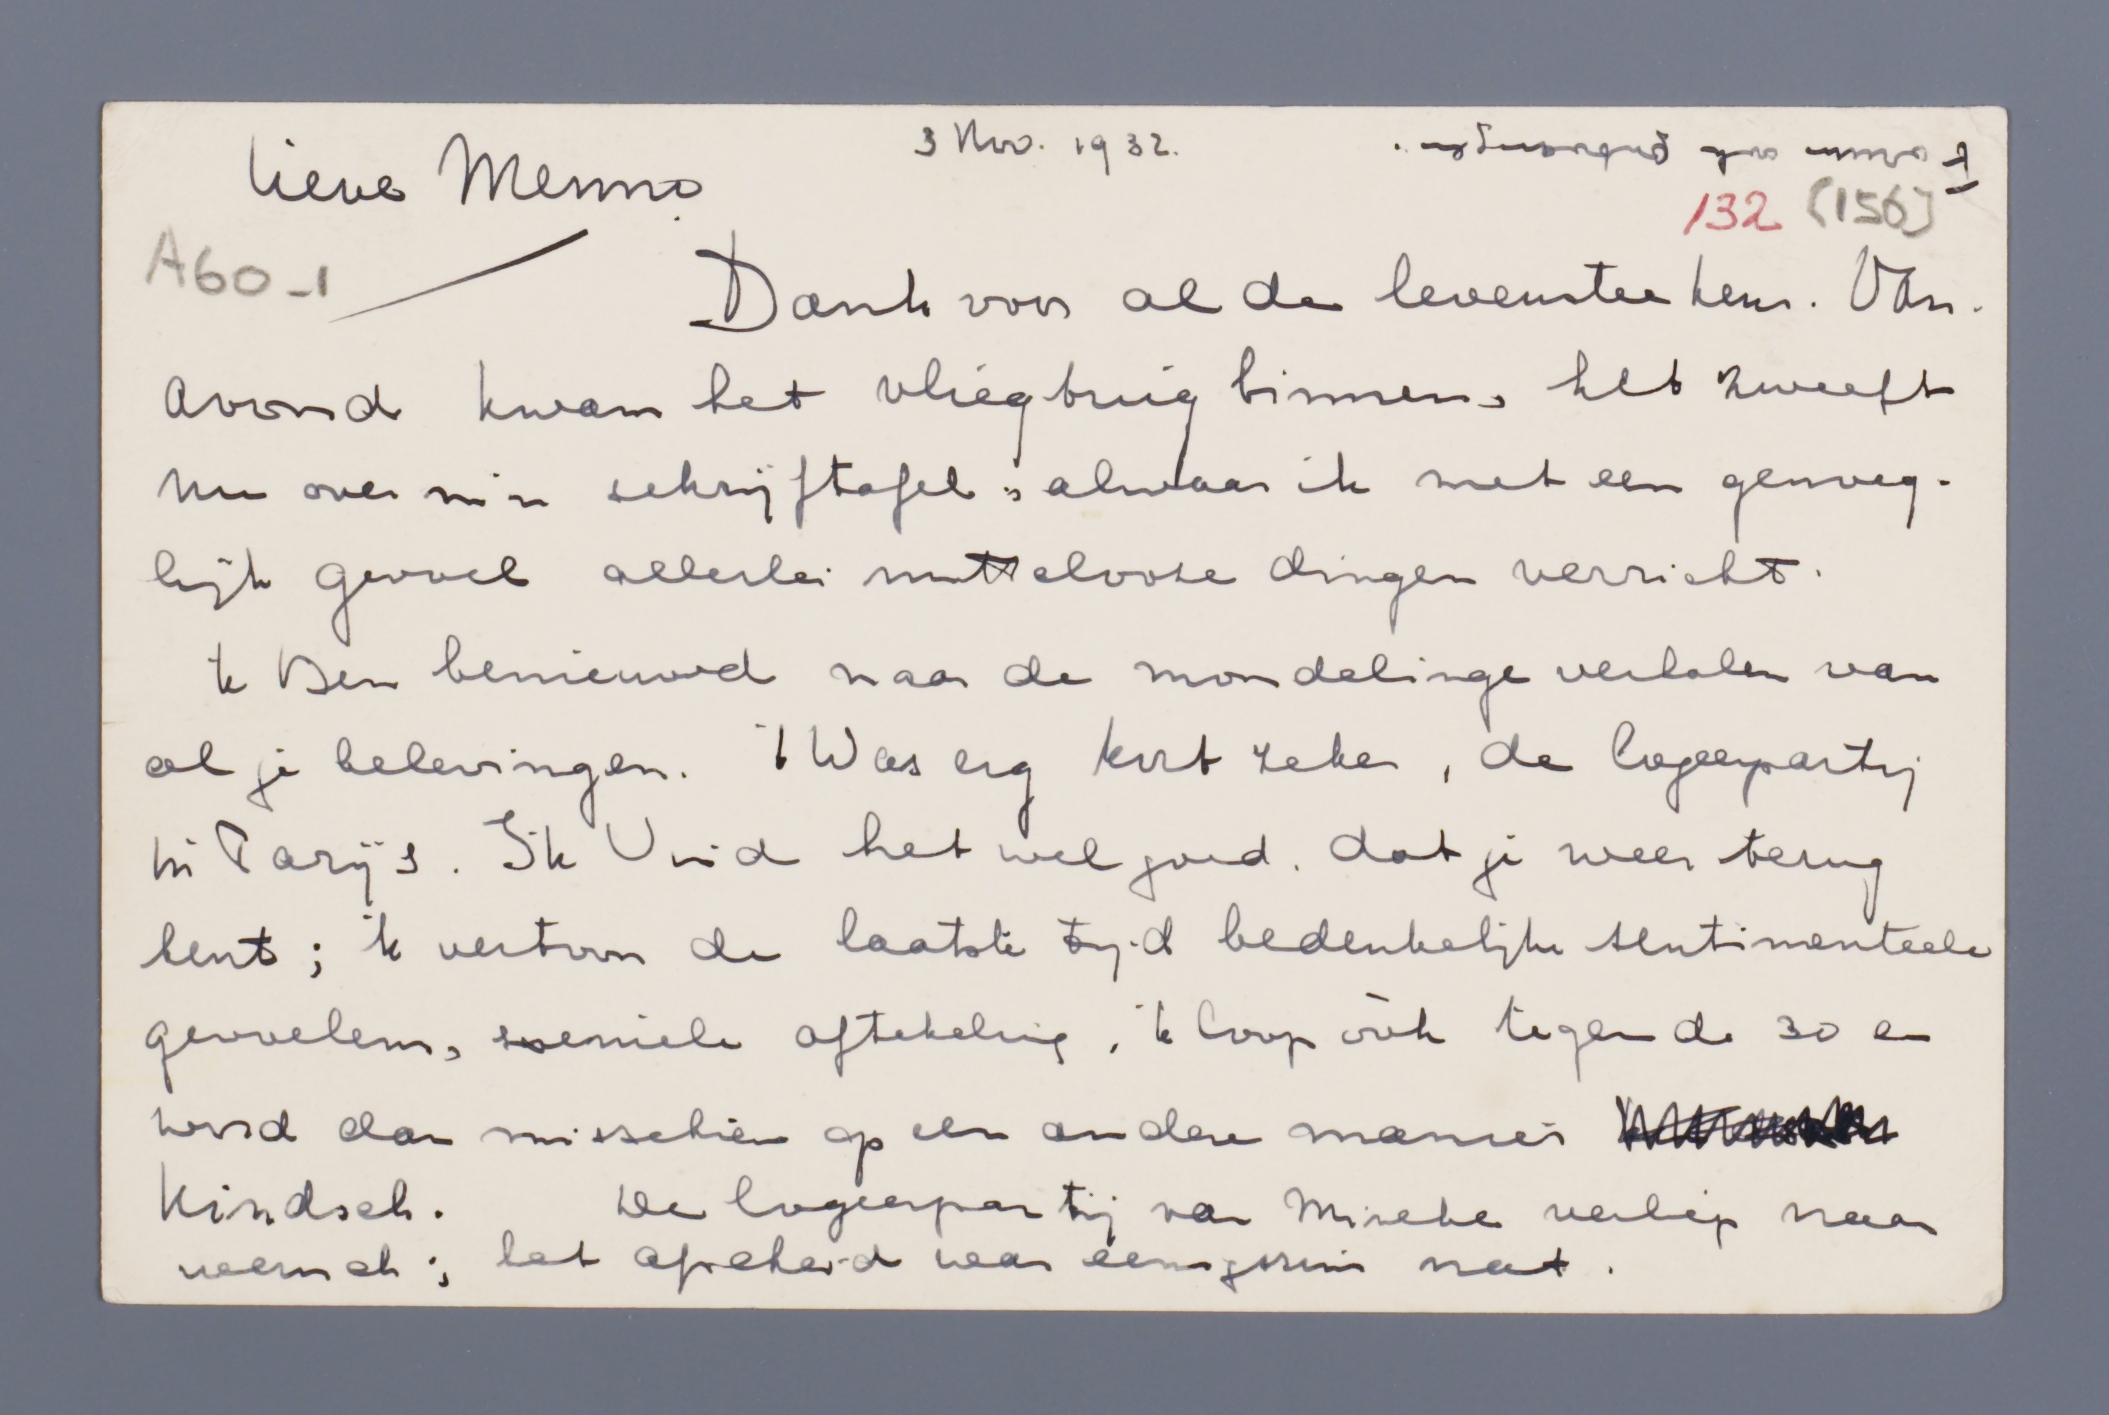 3 Nov. 1932.
Lieve Menno
132 (156)
A60-1
Dank voor al de levensteekens. Van-
avond kwam het vliegtuig binnen, het zweeft
nu over mijn schrijftafel, alwaar ik met een genoeg-
lijk gevoel allerlei nuttelooze dingen verricht.
Ik ben benieuwd naar de mondelinge verhalen van
al je belevingen. 't Was erg kort zeker, de logeerpartij
in Parijs. Ik vind het wel goed, dat je weer terug
bent; ik vertoon de laatste tijd bedenkelijke sentimenteele
gevoelens, seniele aftakeling, ik loop óók tegen de 30 en
word dan misschien op een andere manier
kindsch. De logeerpartij van Mineke verliep naar
wensch; het afscheid was eenigszins nat.